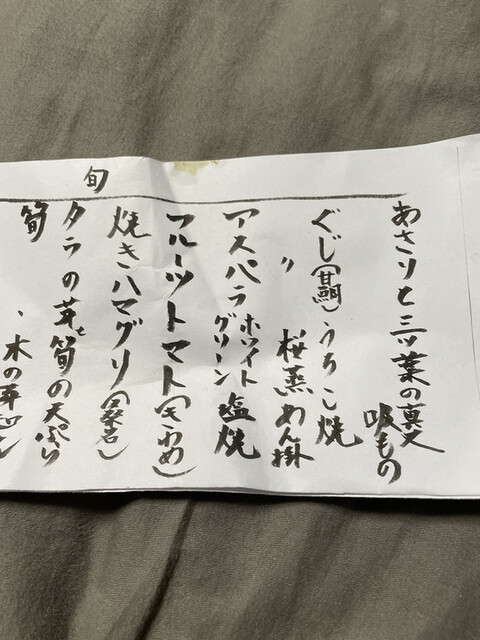 旬
あさりと三ッ葉の真丈
吸もの
ぐじ(甘鯛)うろこ焼
〃 桜蒸めん掛
アスパラ ホワイト グリーン 塩焼
フルーツトマト(きわめ)
焼きハマグリ(桑名)
タラの芽と筍の天ぷら
筍
、木の芽